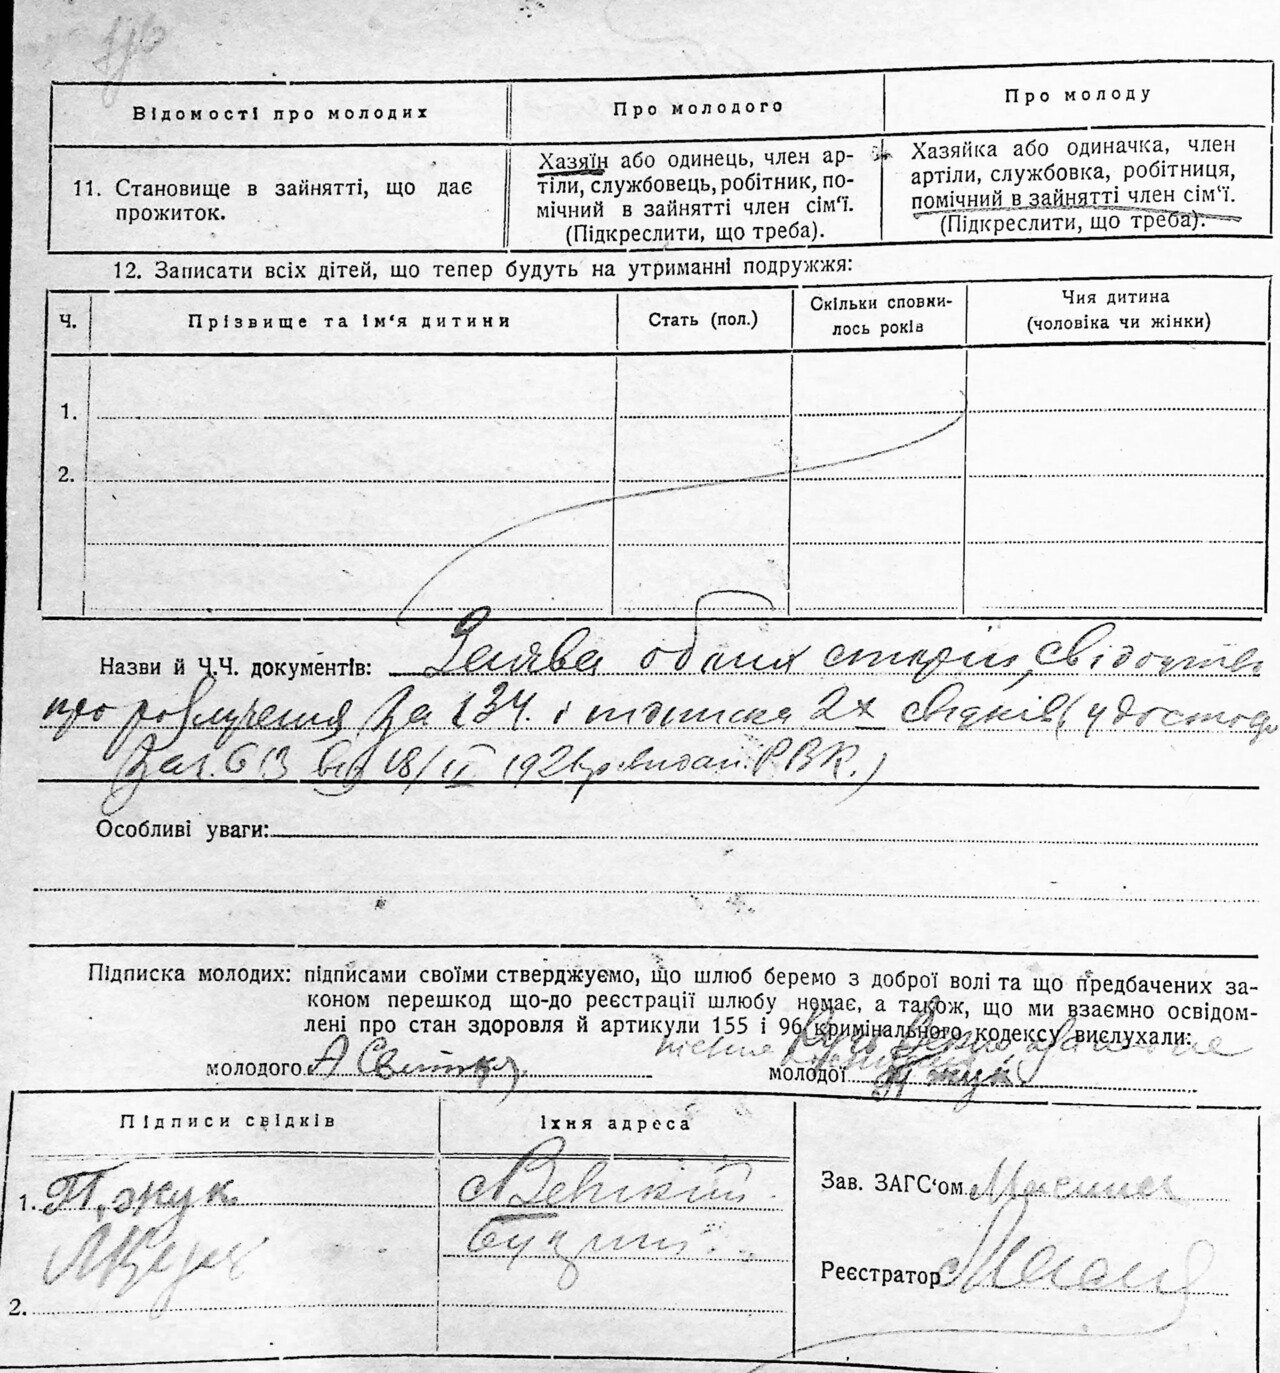 Відомості про молодих
Про молодого
Про молоду
11. Становище в зайнятті, що дає
прожиток.
Хазяїн або одинець, член ар-
тіли, службовець, робітник, по-
мічний в зайнятті член сім'ї.
(Підкреслити, що треба).
Хазяйка або одиначка, член
артіли, службовка, робітниця,
помічний в зайнятті член сім'ї.
(Підкреслити, що треба).
12. Записати всіх дітей, що тепер будуть на утриманні подружжя:
Ч.
Прізвище та ім'я дитини
Стать (пол.)
Скільки сповни-
лось років
Чия дитина
(чоловіка чи жінки)
1.
2.
Назви й Ч.Ч. документів: Заява обоих сторін, свідоцтво
про розлучення За 134. і підписка 2х свідків
613 від 18/II РВК.)
Особливі уваги:
Підписка молодих: підписами своїми стверджуємо, що шлюб беремо з доброї волі та що предбачених за-
коном перешкод що-до реєстрації шлюбу немає, а також, що ми взаємно освідом-
лені про стан здоровля й артикули 155 і 96 кримінального кодексу вислухали:
молодого А
молодої
Підписи свідків
Їхня адреса
1. П. жук
2.
Зав. ЗАГС'ом
Реєстратор